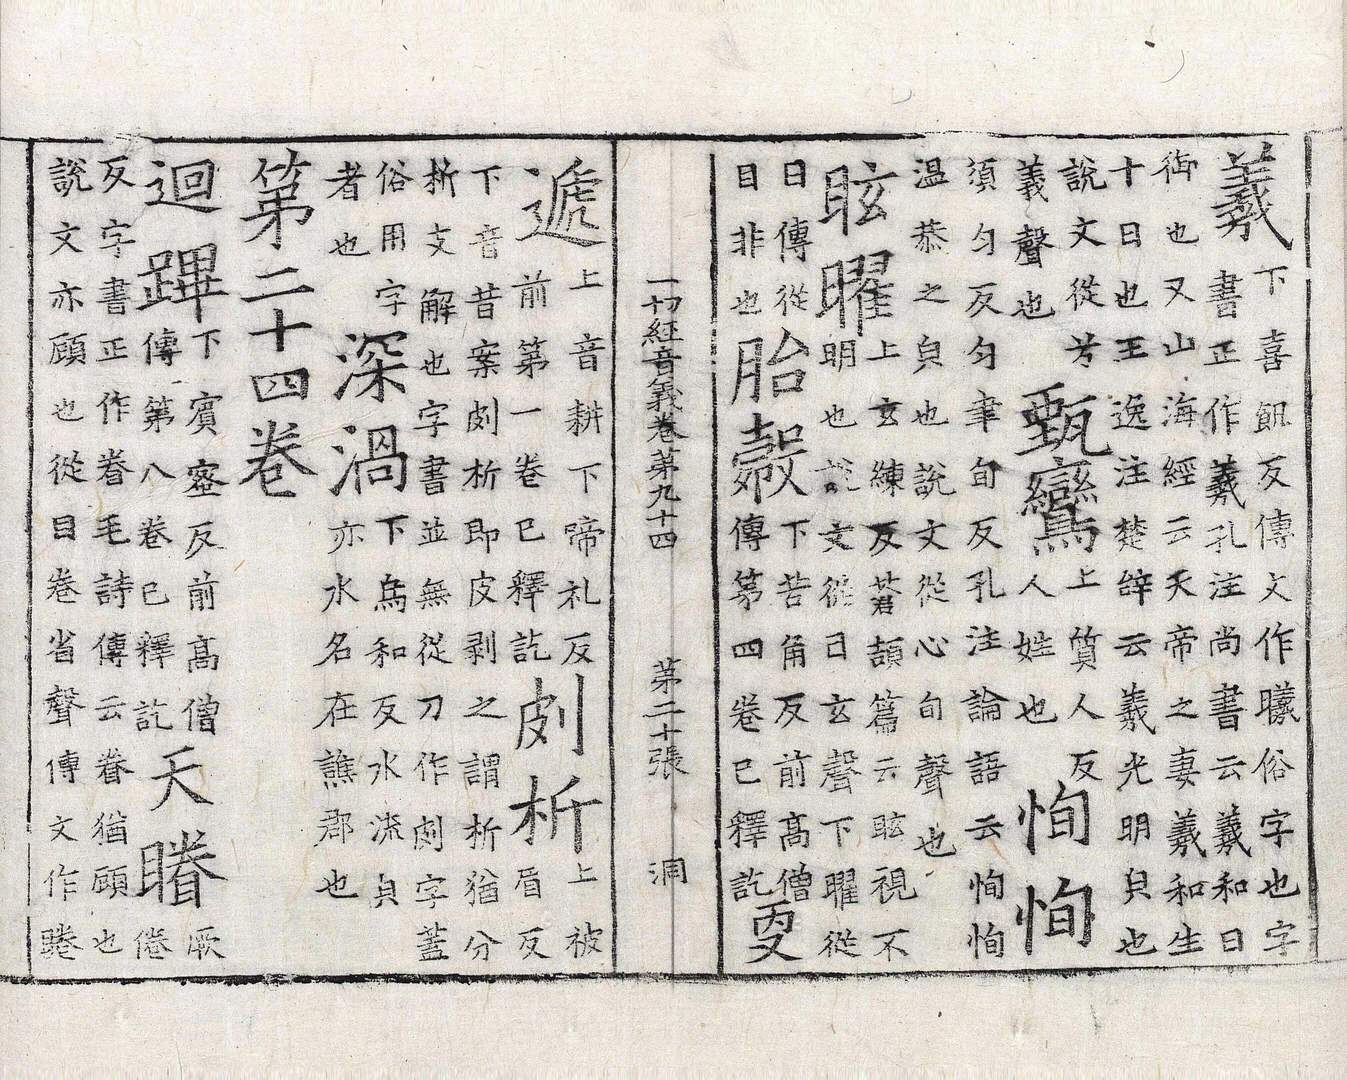 羲
下喜飢反傳文作曦俗字也字
書正作羲孔注尚書云羲和日
御也又山海經云天帝之妻羲和生
十日也王逸注楚辝云羲光明皃也
說文從兮
義聲也
甄鸞
上質人反
人姓也
恂恂
須勻反勻聿旬反孔注論語云恂恂
温恭之皃也說文從心旬聲也
眩曜
上玄練反蒼頡篇云眩視不
明也說文從目玄聲下曜從
日傳從
目非也
胎㲉
下苦角反前高僧
傳第四卷已釋訖
更
一切經音義卷第九十四 第二十張 洞
遞
上音耕下啼礼反
前第一卷已釋訖
㓟析
上被
眉反
下音昔案㓟析即皮剥之謂析猶分
析支解也字書並無從刀作㓟字蓋
俗用字
者也
深渦
下烏和反水流皃
亦水名在譙郡也
第二十四卷
迴蹕
下賓蜜反前高僧
傳第八卷已釋訖
天睠
厥
倦
反字書正作眷毛詩傳云眷猶顧也
說文亦顧也從目卷省聲傳文作睠